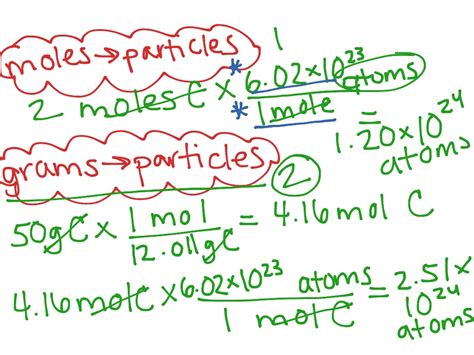 moles → particles
1
2 moles C × * 6.02×10²³ atoms
* 1 mole
= 1.20×10²⁴ atoms
grams → particles
2
50gC × 1 mol = 4.16 mol C
12.011gC
4.16 mol C × 6.02×10²³ atoms = 2.51× 10²⁴ atoms
1 mol C